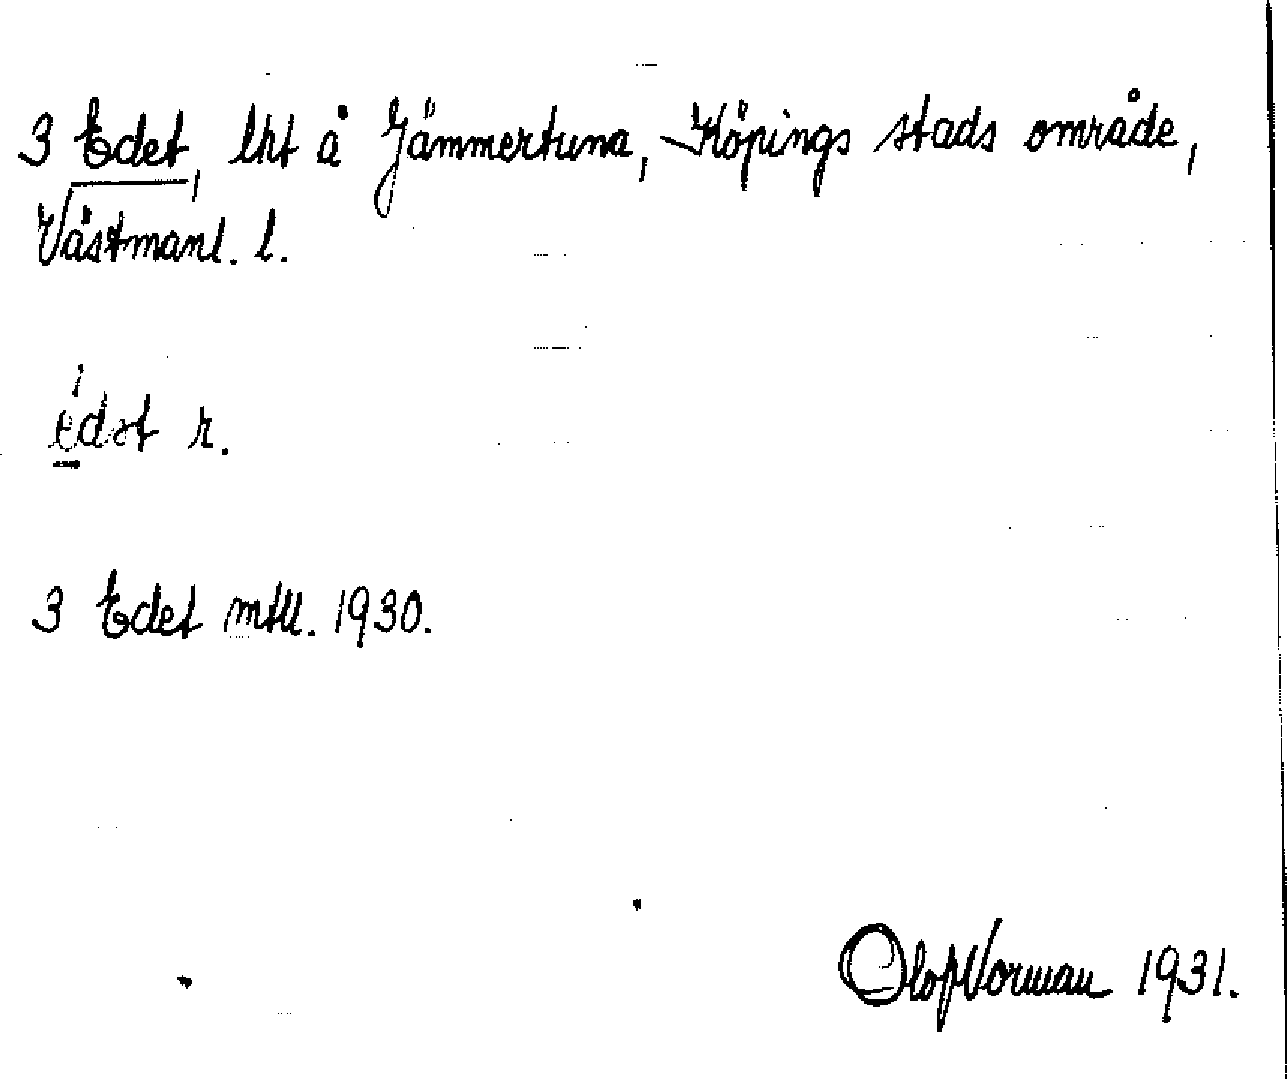 3 Edet, lht å Jämmertuna, Köpings stads område,
Västmanl. l.
édət r.
3 Edet mtll. 1930.
Olof Norman 1931.